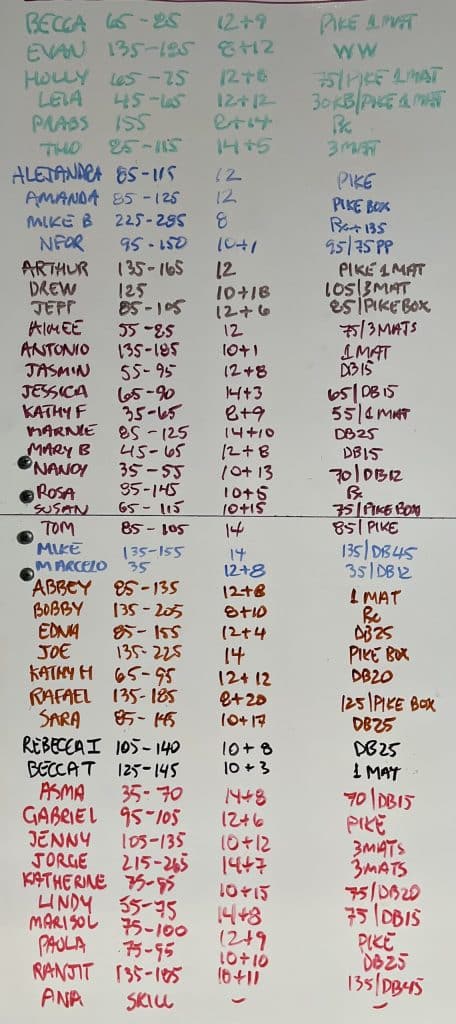 BECCA 65-85 12+9 PIKE 1 MAT
EVAN 135-185 8+12 WW
HOLLY 65-75 12+8 75/PIKE 1 MAT
LEIA 45-65 12+12 30KB/PIKE 1 MAT
PRABS 155 8+14 Rx
THO 85-115 14+5 3 MAT
ALEJANDRA 85-115 12 PIKE
AMANDA 85-125 12 PIKE BOX
MIKE B 225-285 8 Rx+135
NFOR 95-150 10+1 95/75PP
ARTHUR 135-165 12 PIKE 1 MAT
DREW 125 10+18 105/3MAT
JEFF 85-105 12+6 85/PIKE BOX
AIMEE 55-85 12 75/3MATS
ANTONIO 135-185 10+1 1 MAT
JASMIN 55-95 12+8 DB15
JESSICA 65-90 14+3 65/DB15
KATHY F 35-65 8+9 55/1 MAT
MARNIE 85-125 14+10 DB25
MARY B 45-65 12+8 DB15
NANDY 35-55 10+13 70/DB12
ROSA 95-145 10+5 Rx
SUSAN 65-115 10+15 75/PIKE BOX
TOM 85-105 14 85/PIKE
MIKE 135-155 14 135/DB45
MARCELO 35 12+8 35/DB12
ABBEY 85-135 12+8 1 MAT
BOBBY 135-205 8+10 Rx
EDNA 85-155 12+4 DB25
JOE 135-225 14 PIKE BOX
KATHY H 65-95 12+12 DB20
RAFAEL 135-185 8+20 125/PIKE BOX
SARA 85-145 10+17 DB25
REBECCA I 105-140 10+8 DB25
BECCA T 125-145 10+3 1 MAT
ASMA 35-70 14+8 70/DB15
GABRIEL 95-105 12+6 PIKE
JENNY 105-135 10+12 3MATS
JORGE 215-265 14+7 3MATS
KATHERINE 75-85 10+15 75/DB20
LINDY 55-75 14+8 75/DB15
MARISOL 75-100 12+9 PIKE
PAOLA 75-95 10+10 DB25
RANJIT 135-185 10+11 135/DB45
ANA SKILL - -